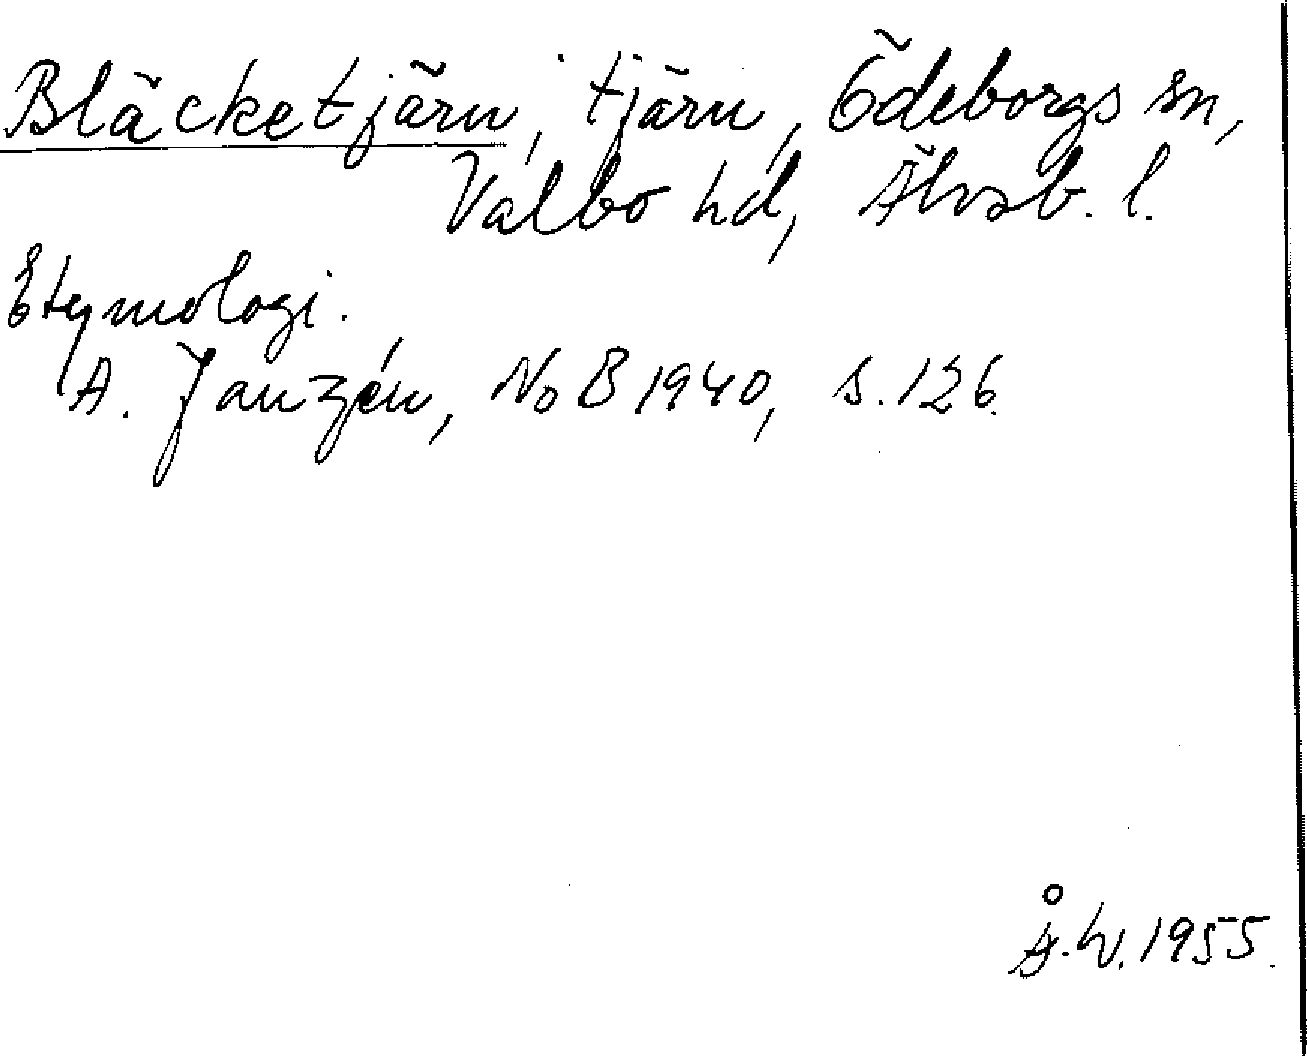 Bläcketjärn, tjärn, Ödeborgs sn,
Valbo hd, Älvsb. l.
Etymologi.
A. Janzén, NoB 1940, s. 126.
Å. W. 1955.